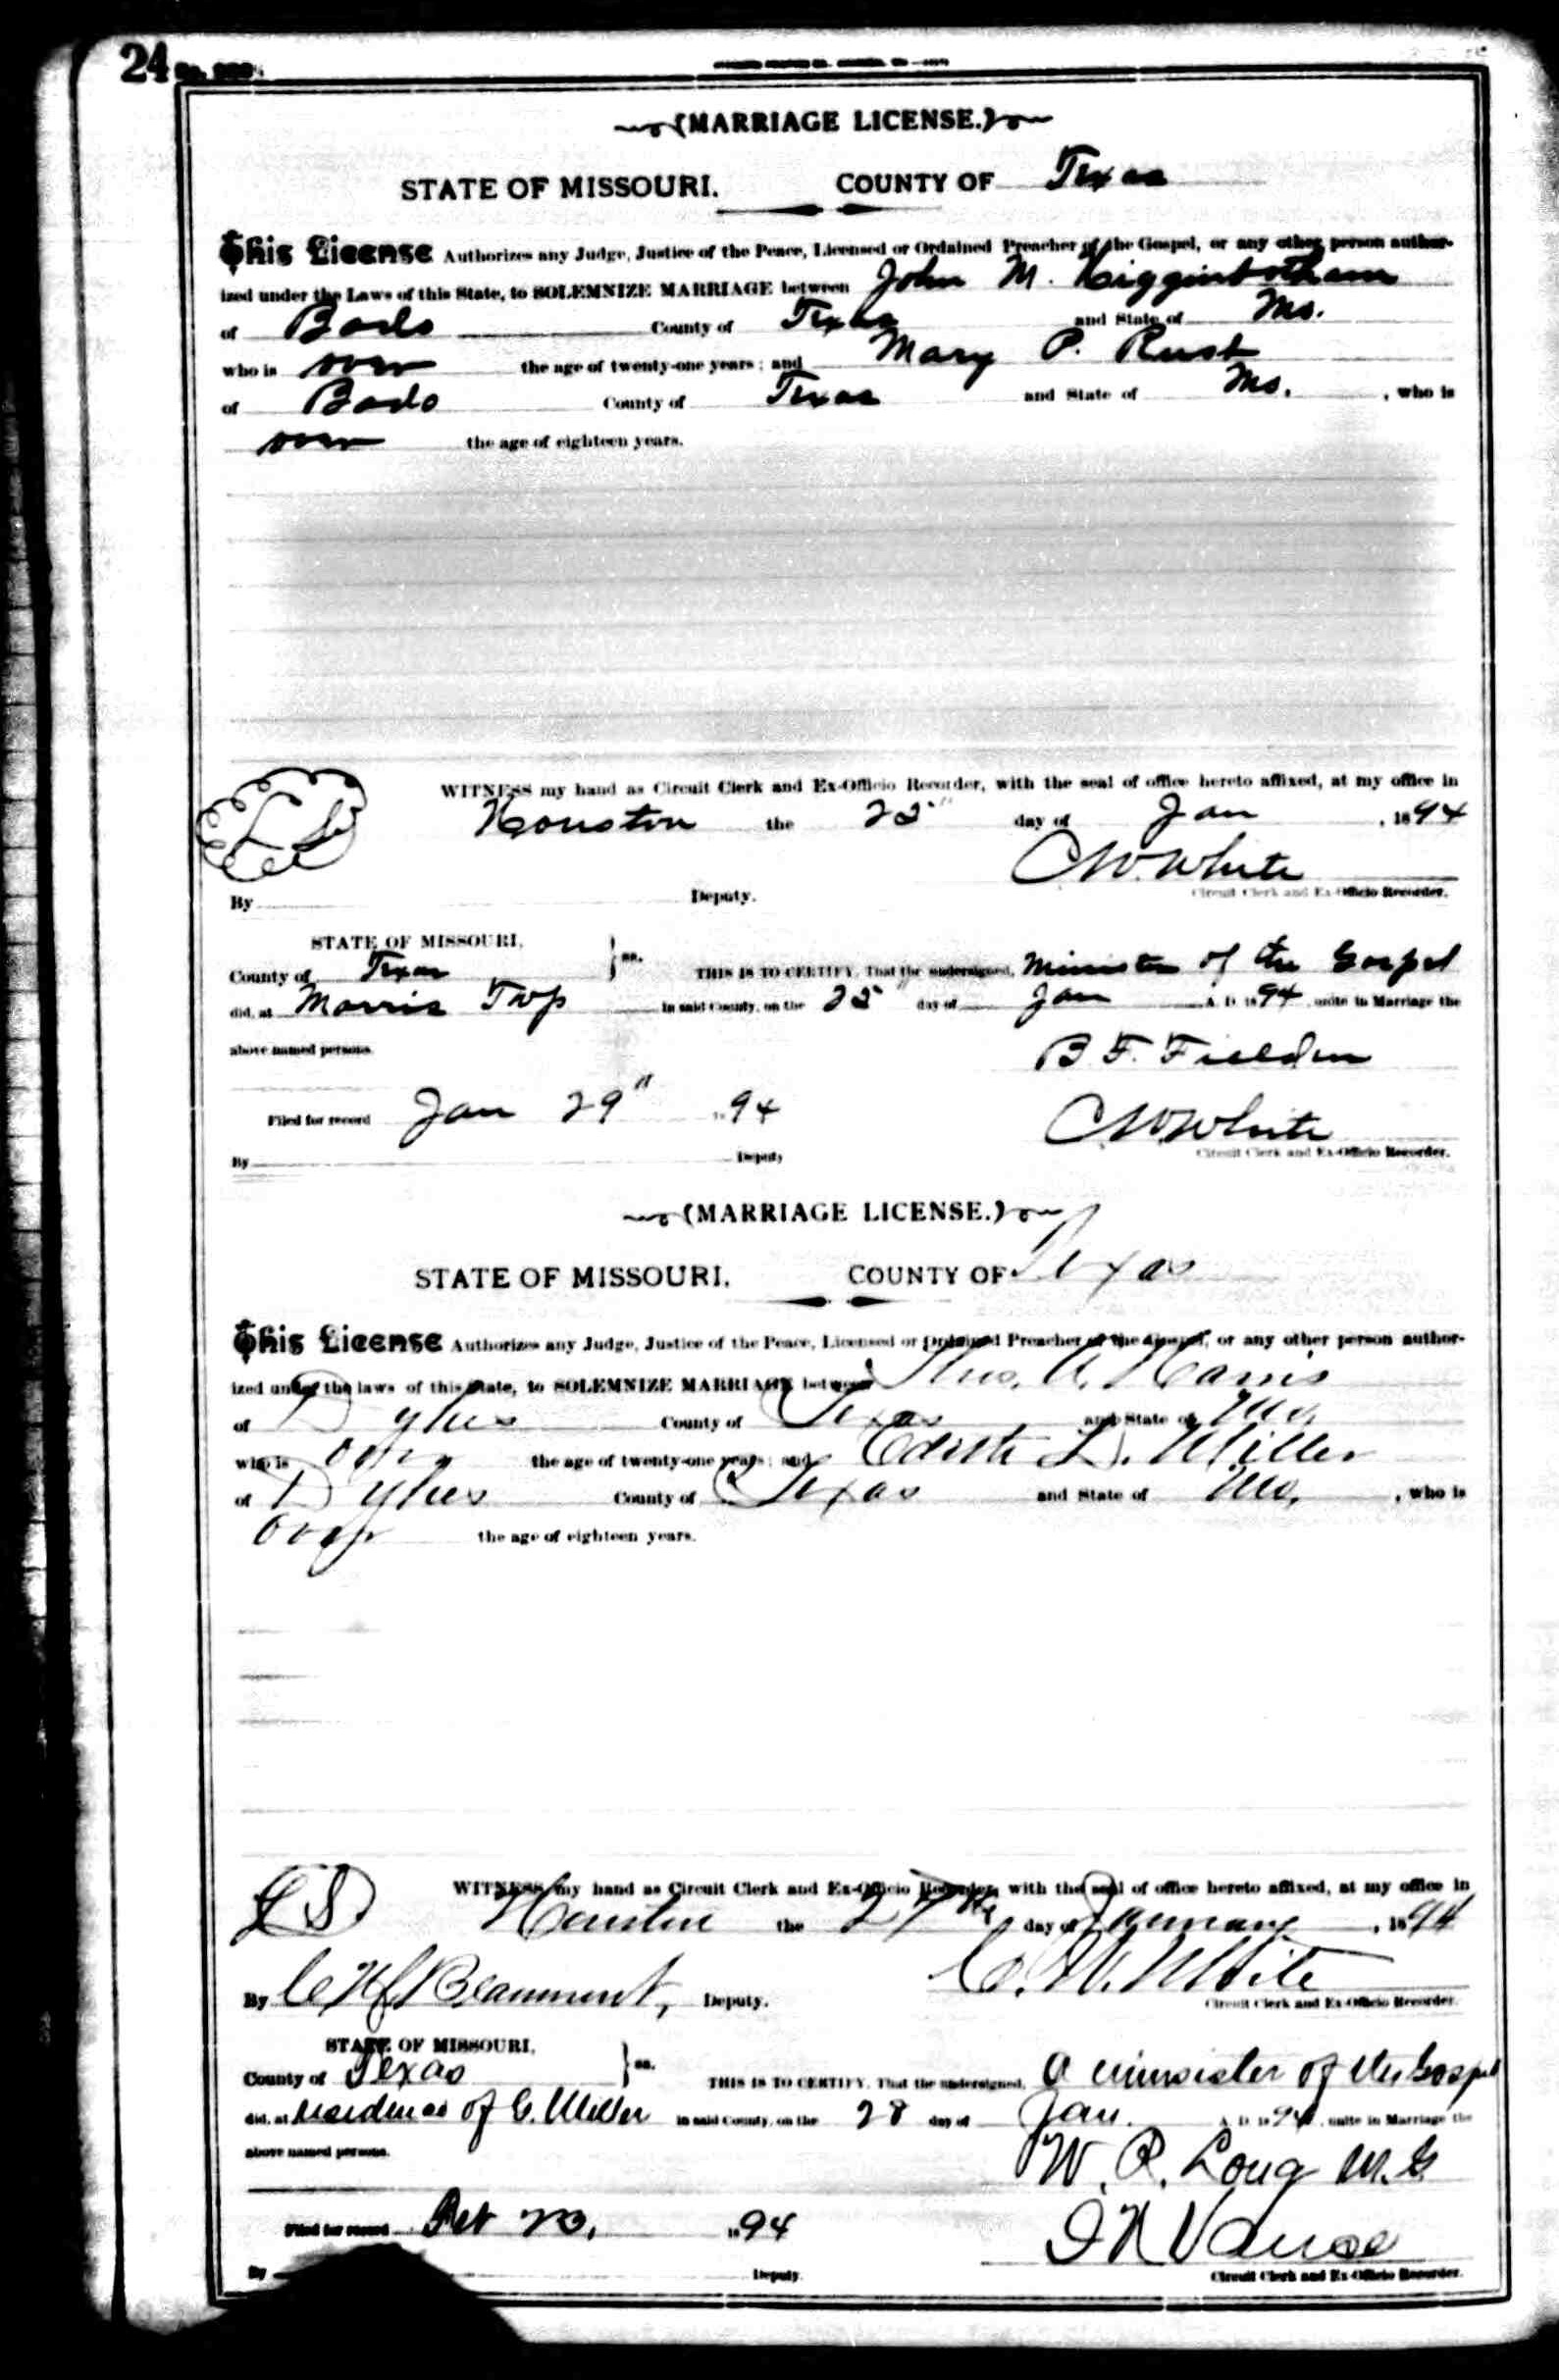 24
(MARRIAGE LICENSE.)
STATE OF MISSOURI. COUNTY OF Texas
This License Authorizes any Judge, Justice of the Peace, Licensed or Ordained Preacher of the Gospel, or any other person author-
ized under the Laws of this State, to SOLEMNIZE MARRIAGE between John M. Higginbotham
of Bado County of Texas and State of Mo.
who is over the age of twenty-one years; and Mary P. Rust
of Bado County of Texas and State of Mo. , who is
over the age of eighteen years.
WITNESS my hand as Circuit Clerk and Ex-Officio Recorder, with the seal of office hereto affixed, at my office in
Houston the 25" day of Jan , 1894
C W White
By Deputy. Circuit Clerk and Ex-Officio Recorder.
STATE OF MISSOURI,
County of Texas } ss. THIS IS TO CERTIFY, That the undersigned, Minister of the Gospel
did, at Morris Twp in said County, on the 25" day of Jan A. D. 1894 unite in Marriage the
above named persons. B. F. Fielden
Filed for record Jan 29" 1894 C W White
By Deputy Circuit Clerk and Ex-Officio Recorder.
(MARRIAGE LICENSE.)
STATE OF MISSOURI, COUNTY OF Texas
This License Authorizes any Judge, Justice of the Peace, Licensed or Ordained Preacher of the Gospel, or any other person author-
ized under the laws of this State, to SOLEMNIZE MARRIAGE between Thos. A. Harris
of Dykes County of Texas and State of Mo.
who is over the age of twenty-one years; and Edith L. Miller
of Dykes County of Texas and State of Mo. , who is
over the age of eighteen years.
L S
WITNESS my hand as Circuit Clerk and Ex-Officio Recorder, with the seal of office hereto affixed, at my office in
Houston the 27th day of January , 1894
By Beaumont, Deputy. C. W. White
Circuit Clerk and Ex-Officio Recorder.
STATE OF MISSOURI,
County of Texas } ss. THIS IS TO CERTIFY, That the undersigned, a minister of the Gospel
did, at residence of C. Miller in said County, on the 28 day of Jan. A. D. 1894, unite in Marriage the
above named persons. W. R. Long M. G
Filed for record 1894
By Deputy. Circuit Clerk and Ex-Officio Recorder.